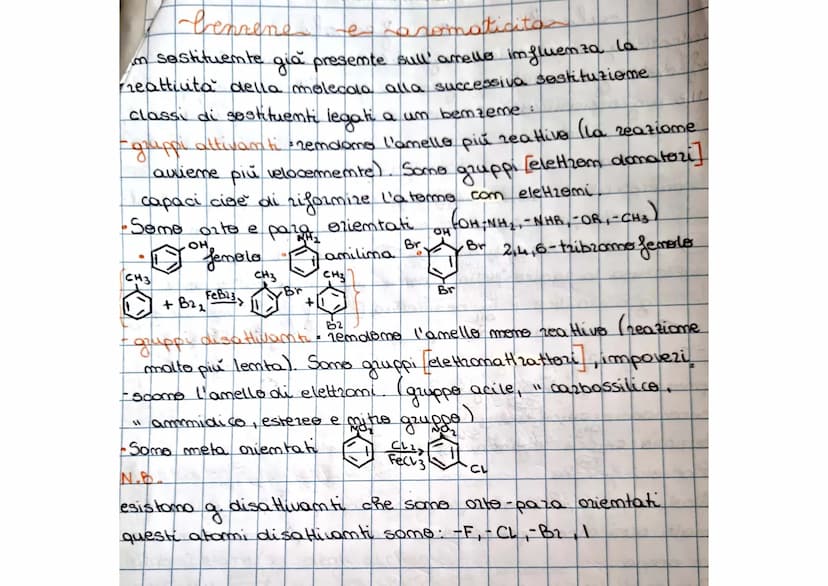 benzene e aromaticità
un sostituente già presente sull'anello influenza la
reattività della molecola alla successiva sostituzione
classi di sostituenti legati a un benzene:
-gruppi attivanti: rendono l'anello più reattivo (la reazione
avviene più velocemente). Sono gruppi [elettron donatori]
capaci cioè di rifornire l'atomo con elettroni.
•Sono orto e para orientati (OH, NH2, -NHR, -OR, -CH3)
• OH fenolo • NH2 anilina • OH Br Br Br 2,4,6-tribromofenolo
CH3 + Br2 FeBr3 CH3 Br + CH3 Br
-gruppi disattivanti: rendono l'anello meno reattivo (reazione
molto più lenta). Sono gruppi [elettronattrattori], impoveri
-scono l'anello di elettroni. (gruppo acile, " carbossilico,
" ammidico, estereo e nitro gruppo)
•Sono meta orientati NO2 Cl2 FeCl3 NO2 Cl
N.B.
esistono g. disattivanti che sono orto-para orientati
questi atomi disattivanti sono: -F, -Cl, -Br, I